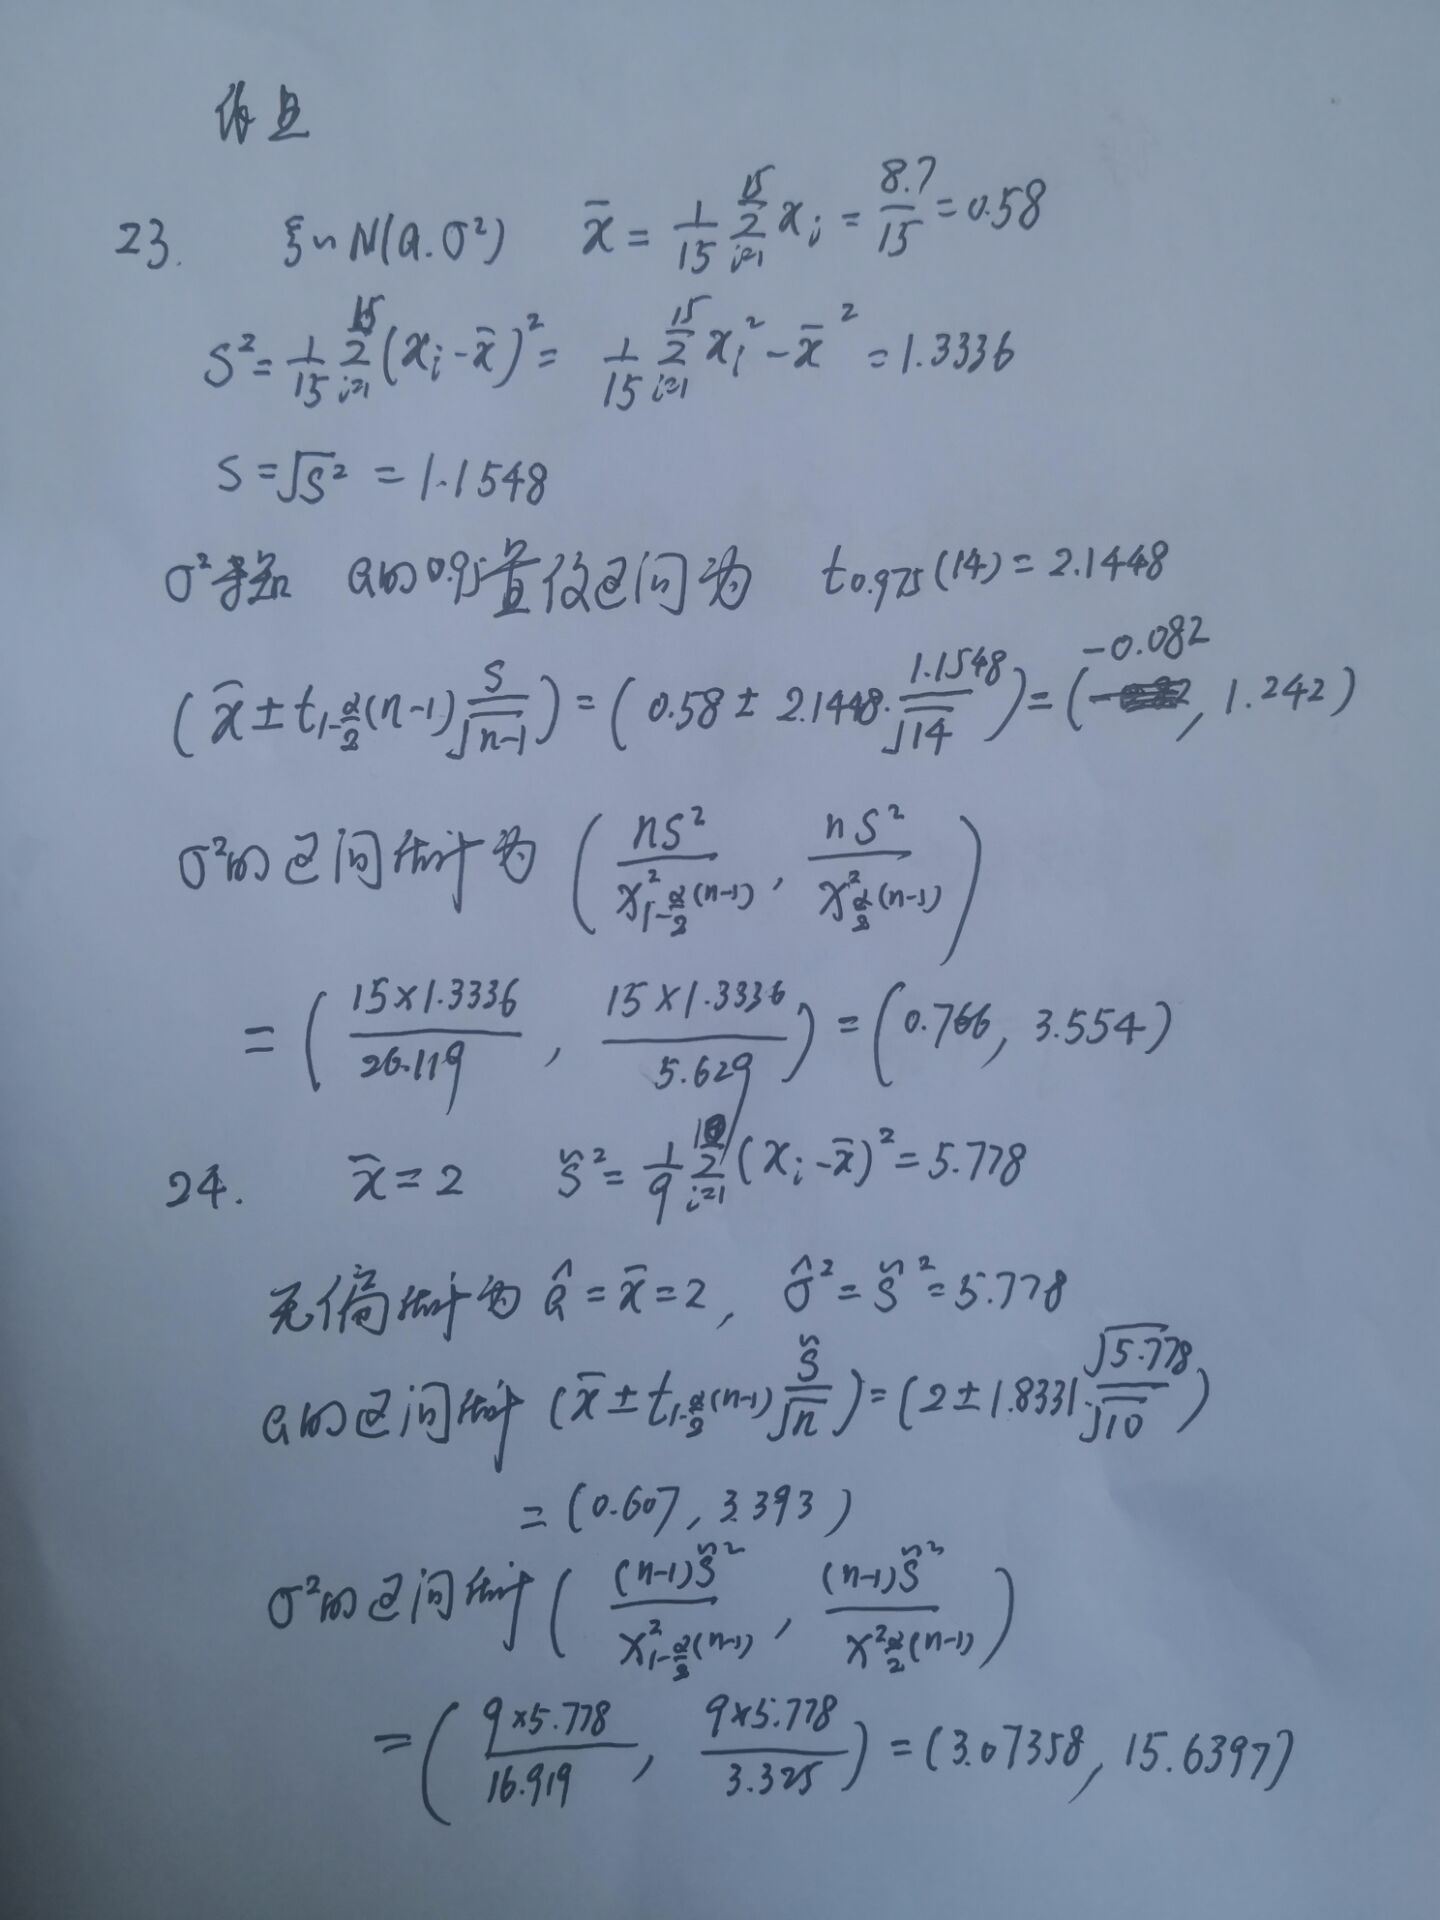 作业
23. ξ~N(a.σ²) x̄ = 1/15 Σ_{i=1}^{15} x_i = 8.7/15 = 0.58
S² = 1/15 Σ_{i=1}^{15} (x_i - x̄)² = 1/15 Σ_{i=1}^{15} x_i² - x̄² = 1.3336
S = √S² = 1.1548
σ²未知 a的0.95置信区间为 t_{0.975}(14) = 2.1448
(x̄ ± t_{1-α/2}(n-1) S/√(n-1)) = (0.58 ± 2.1448·1.1548/√14) = (-0.082, 1.242)
σ²的区间估计为 (nS²/χ²_{1-α/2}(n-1), nS²/χ²_{α/2}(n-1))
= (15×1.3336/26.119, 15×1.3336/5.629) = (0.766, 3.554)
24. x̄ = 2 S̃² = 1/9 Σ_{i=1}^{10} (x_i - x̄)² = 5.778
无偏估计为 â = x̄ = 2, σ̂² = S̃² = 5.778
a的区间估计 (x̄ ± t_{1-α/2}(n-1) S̃/√n) = (2 ± 1.8331·√5.778/√10)
= (0.607, 3.393)
σ²的区间估计 ((n-1)S̃²/χ²_{1-α/2}(n-1), (n-1)S̃²/χ²_{α/2}(n-1))
= (9×5.778/16.919, 9×5.778/3.325) = (3.07358, 15.6397)